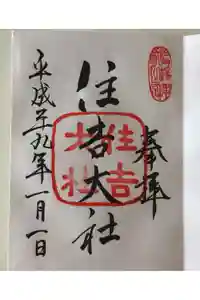 奉拝
住吉大社
住吉大社
平成二十九年一月一日